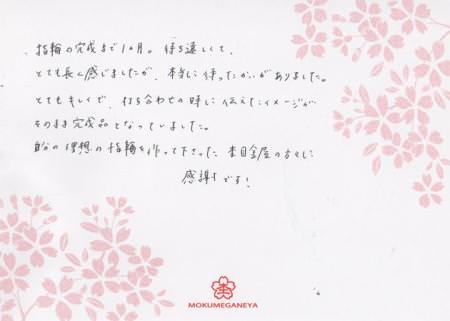 指輪の完成まで1ヵ月。待ち遠しくて、
とても長く感じましたが、本当に待ったかいがありました。
とてもキレイで、打ち合わせの時に伝えたイメージが
そのまま完成品となっていました。
の理想の指輪を作って下さった 杢目金屋の方々に
感謝です!
MOKUMEGANEYA